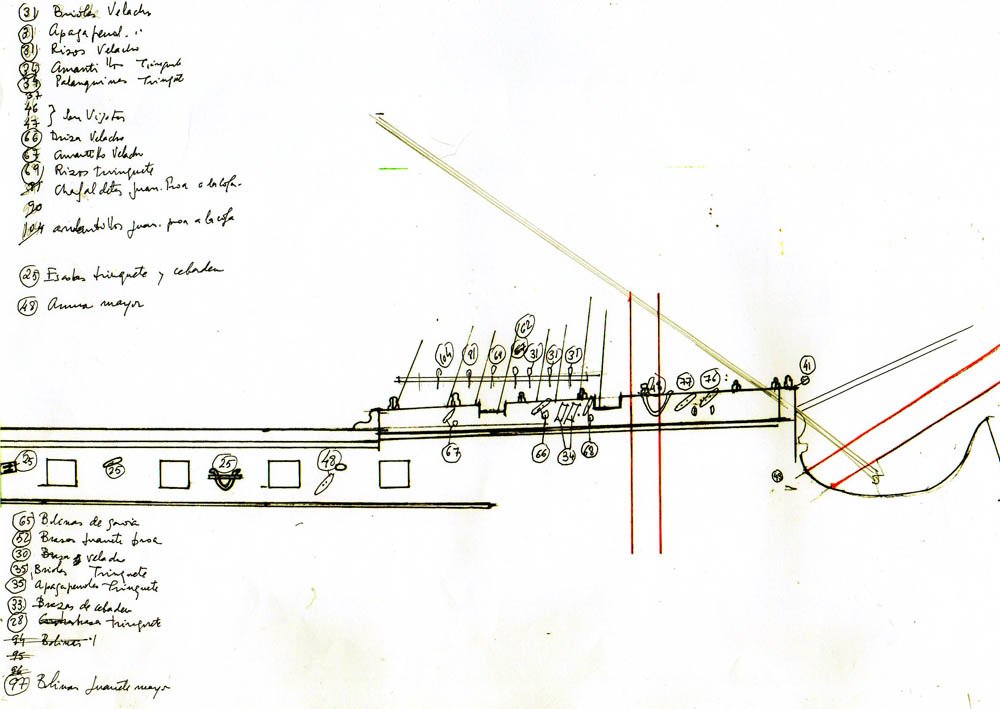 31 Brioles Velacho
31 Apagapenol. "
31 Rizos Velacho
34 Amantillos Trinquete
37 Palanquines Trinqte
37
46
47 } son Vigotas
66 Driza Velacho
67 Amantillo Velacho
69 Rizos trinquete
81 Chafaldetes Juan. Proa a la cofa.
90
104 amantillos juan. proa a la cofa
25 Escotas trinquete y cebadera
48 Amura mayor
162
104 81 69 31 31 31
48 77 76 41
67 66 34 68
25 25 25 48
65 Bolinas de gavia
52 Brazos Juanete proa
30 Braza velacho
35 Brioles Trinquete
35 Apagapenoles Trinquete
33 Brazas de cebadera
28 trinquete
94 Bolinas
95
96
97 Bolinas Juanete mayor